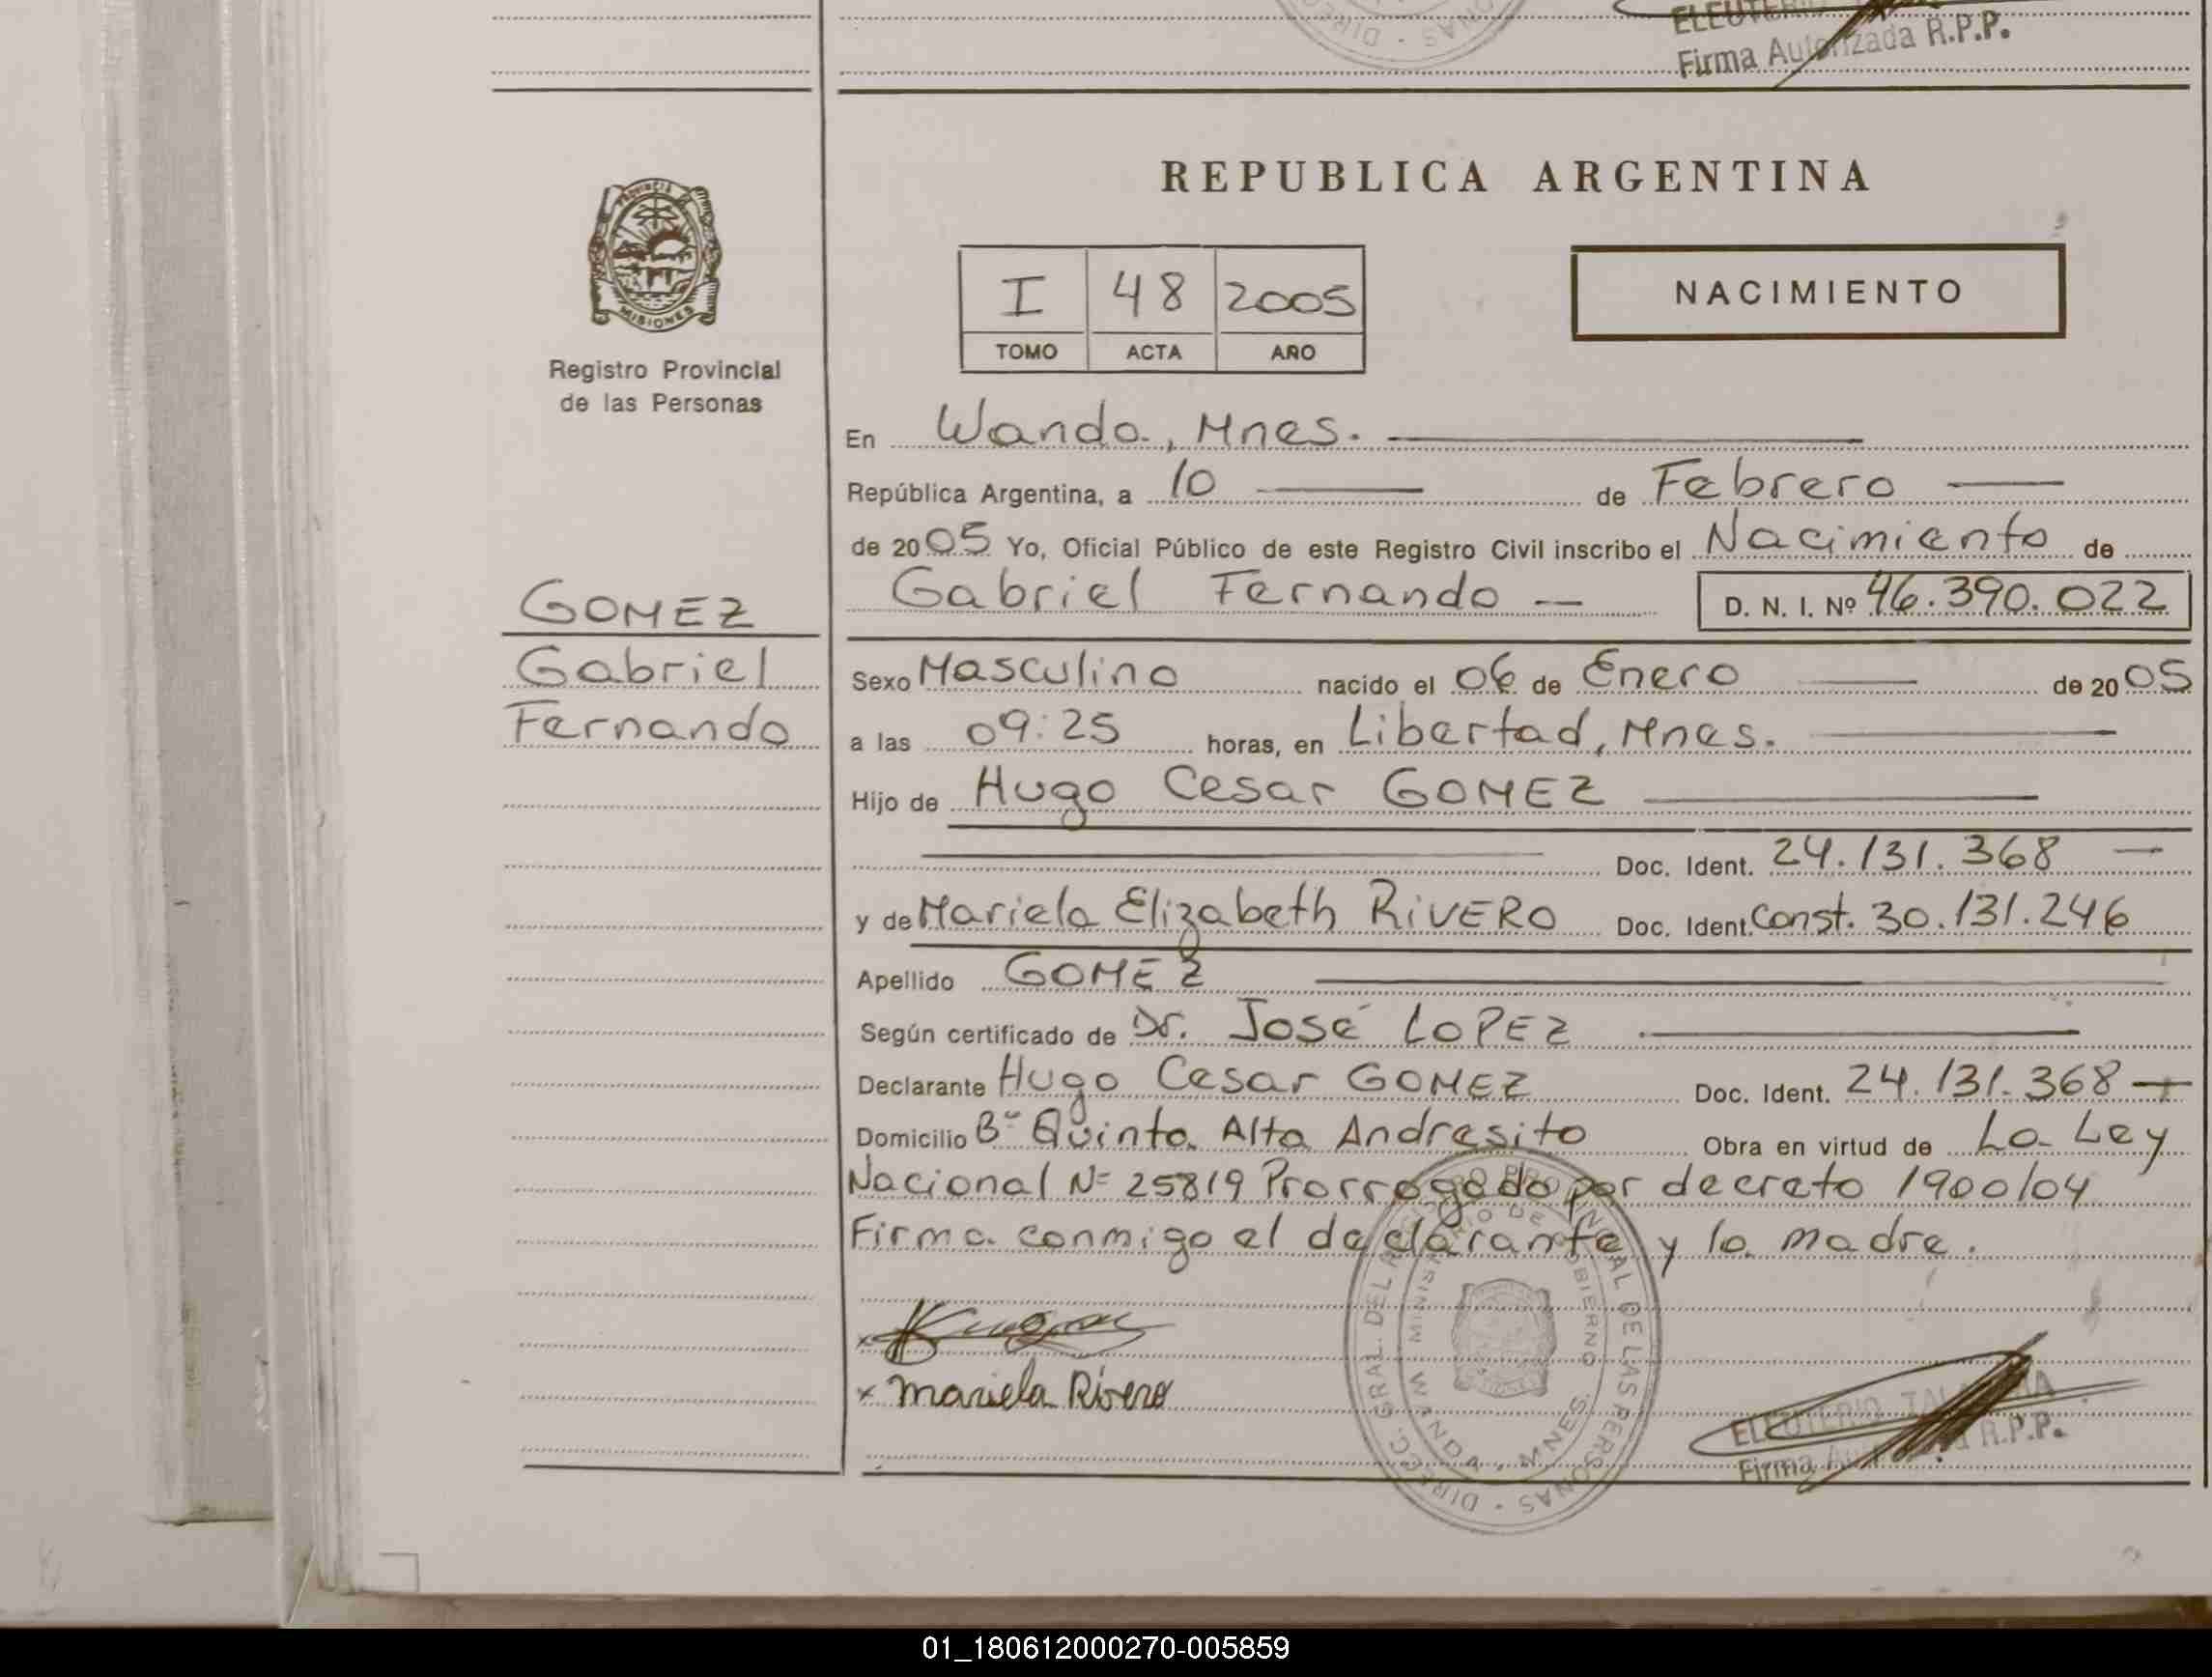 Firma Autorizada R.P.P.
REPUBLICA ARGENTINA
PROVINCIA
MISIONES
Registro Provincial
de las Personas
I 48 2005
TOMO ACTA AÑO
NACIMIENTO
En Wanda, Mnes.
República Argentina, a 10 de Febrero
de 2005 Yo, Oficial Público de este Registro Civil inscribo el Nacimiento de
Gabriel Fernando D. N. I. Nº 46.390.022
GOMEZ
Gabriel
Fernando
Sexo Masculino nacido el 06 de Enero de 2005
a las 09:25 horas, en Libertad, Mnes.
Hijo de Hugo Cesar GOMEZ
Doc. Ident. 24.131.368
y de Mariela Elizabeth RIVERO Doc. Ident. Const. 30.131.246
Apellido GOMEZ
Según certificado de Dr. José LOPEZ
Declarante Hugo Cesar GOMEZ Doc. Ident. 24.131.368
Domicilio Bº Quinta Alta Andresito Obra en virtud de La Ley
Nacional Nº 25819 Prorrogado por decreto 1900/04
Firma conmigo el declarante y la madre.
x
x Mariela Rivero
DIREC. GRAL. DEL REGISTRO PROVINCIAL DE LAS PERSONAS
MINISTERIO DE GOBIERNO
WANDA - MNES.
ELEUTERIO
Firma Autorizada R.P.P.
01_180612000270-005859